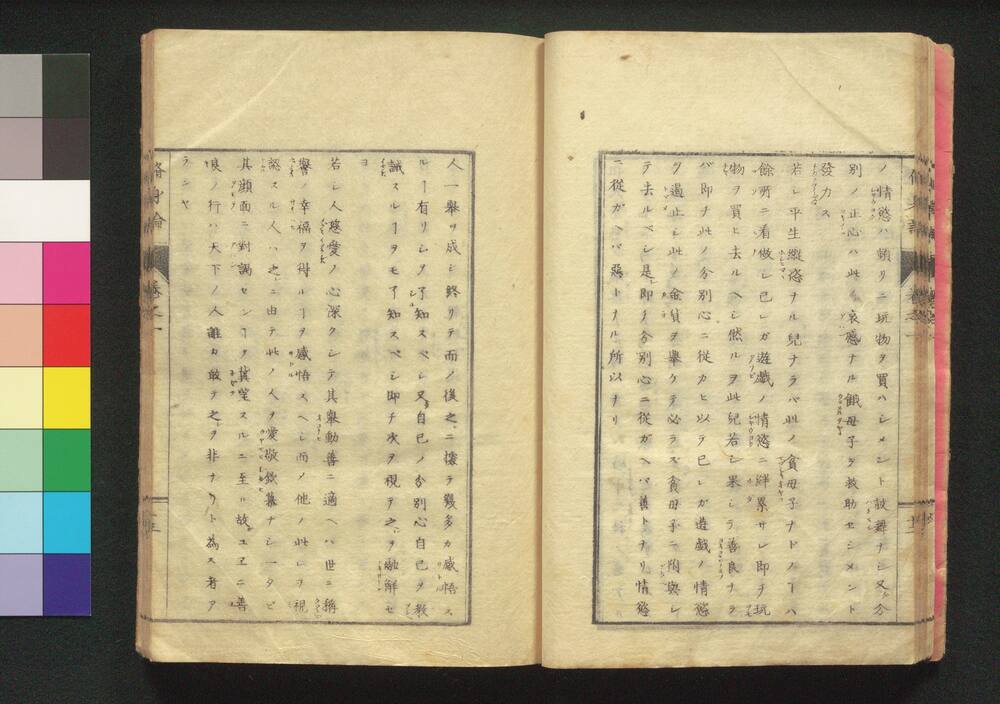 ノ情慾ハ頻リニ玩物ヲ買ハシメント鼓舞ナシ又分
別ノ正心ハ此ノ哀憐ナル餓母子ヲ救助セシメント
發力ス
若シ平生縱恣ナル兒ナラバ此ノ貧母子ナドノヿハ
餘所ニ看做シ已レガ遊戲ノ情慾ニ絆累サレ即チ玩
物ヲ買ヒ去ルヘシ然ルヲ此兒若シ果シテ善良ナラ
バ即ナ此ノ分別心ニ從カヒ以テ已レガ遊戲ノ情慾
ヲ遏止シ此ノ金貨ヲ擧ケテ必ラズ貧母子ニ附與シ
テ去ルベシ是即チ分別心ニ從ガヘバ善トナリ情慾
ニ從ガヘバ惡トナル所以ナリ
人一擧ヲ成シ終リテ而ノ後之ニ據ラ幾多カ感悟ス
ルヿ有リシヲ了知スベシ又自已ノ分別心自已ヲ教
誡スルヿヲモ了知スベシ即チ次ヲ視テ之ヲ融解セ
ヨ
若シ人慈愛ノ心深クシテ其擧動善ニ適ヘハ世ニ稱
譽ノ幸福ヲ得ルヿヲ感悟スヘシ而ノ他ノ此レヲ視
認スル人ハ之ニ由テ此ノ人ヲ愛敬欽慕ナシ一タビ
其顔面ニ對謁センヿヲ冀望スルニ至ル故ユヱニ善
良ノ行ハ天下ノ人誰カ敢テ之ヲ非ナリト為ス者ア
ランヤ
脩身論 卷之一